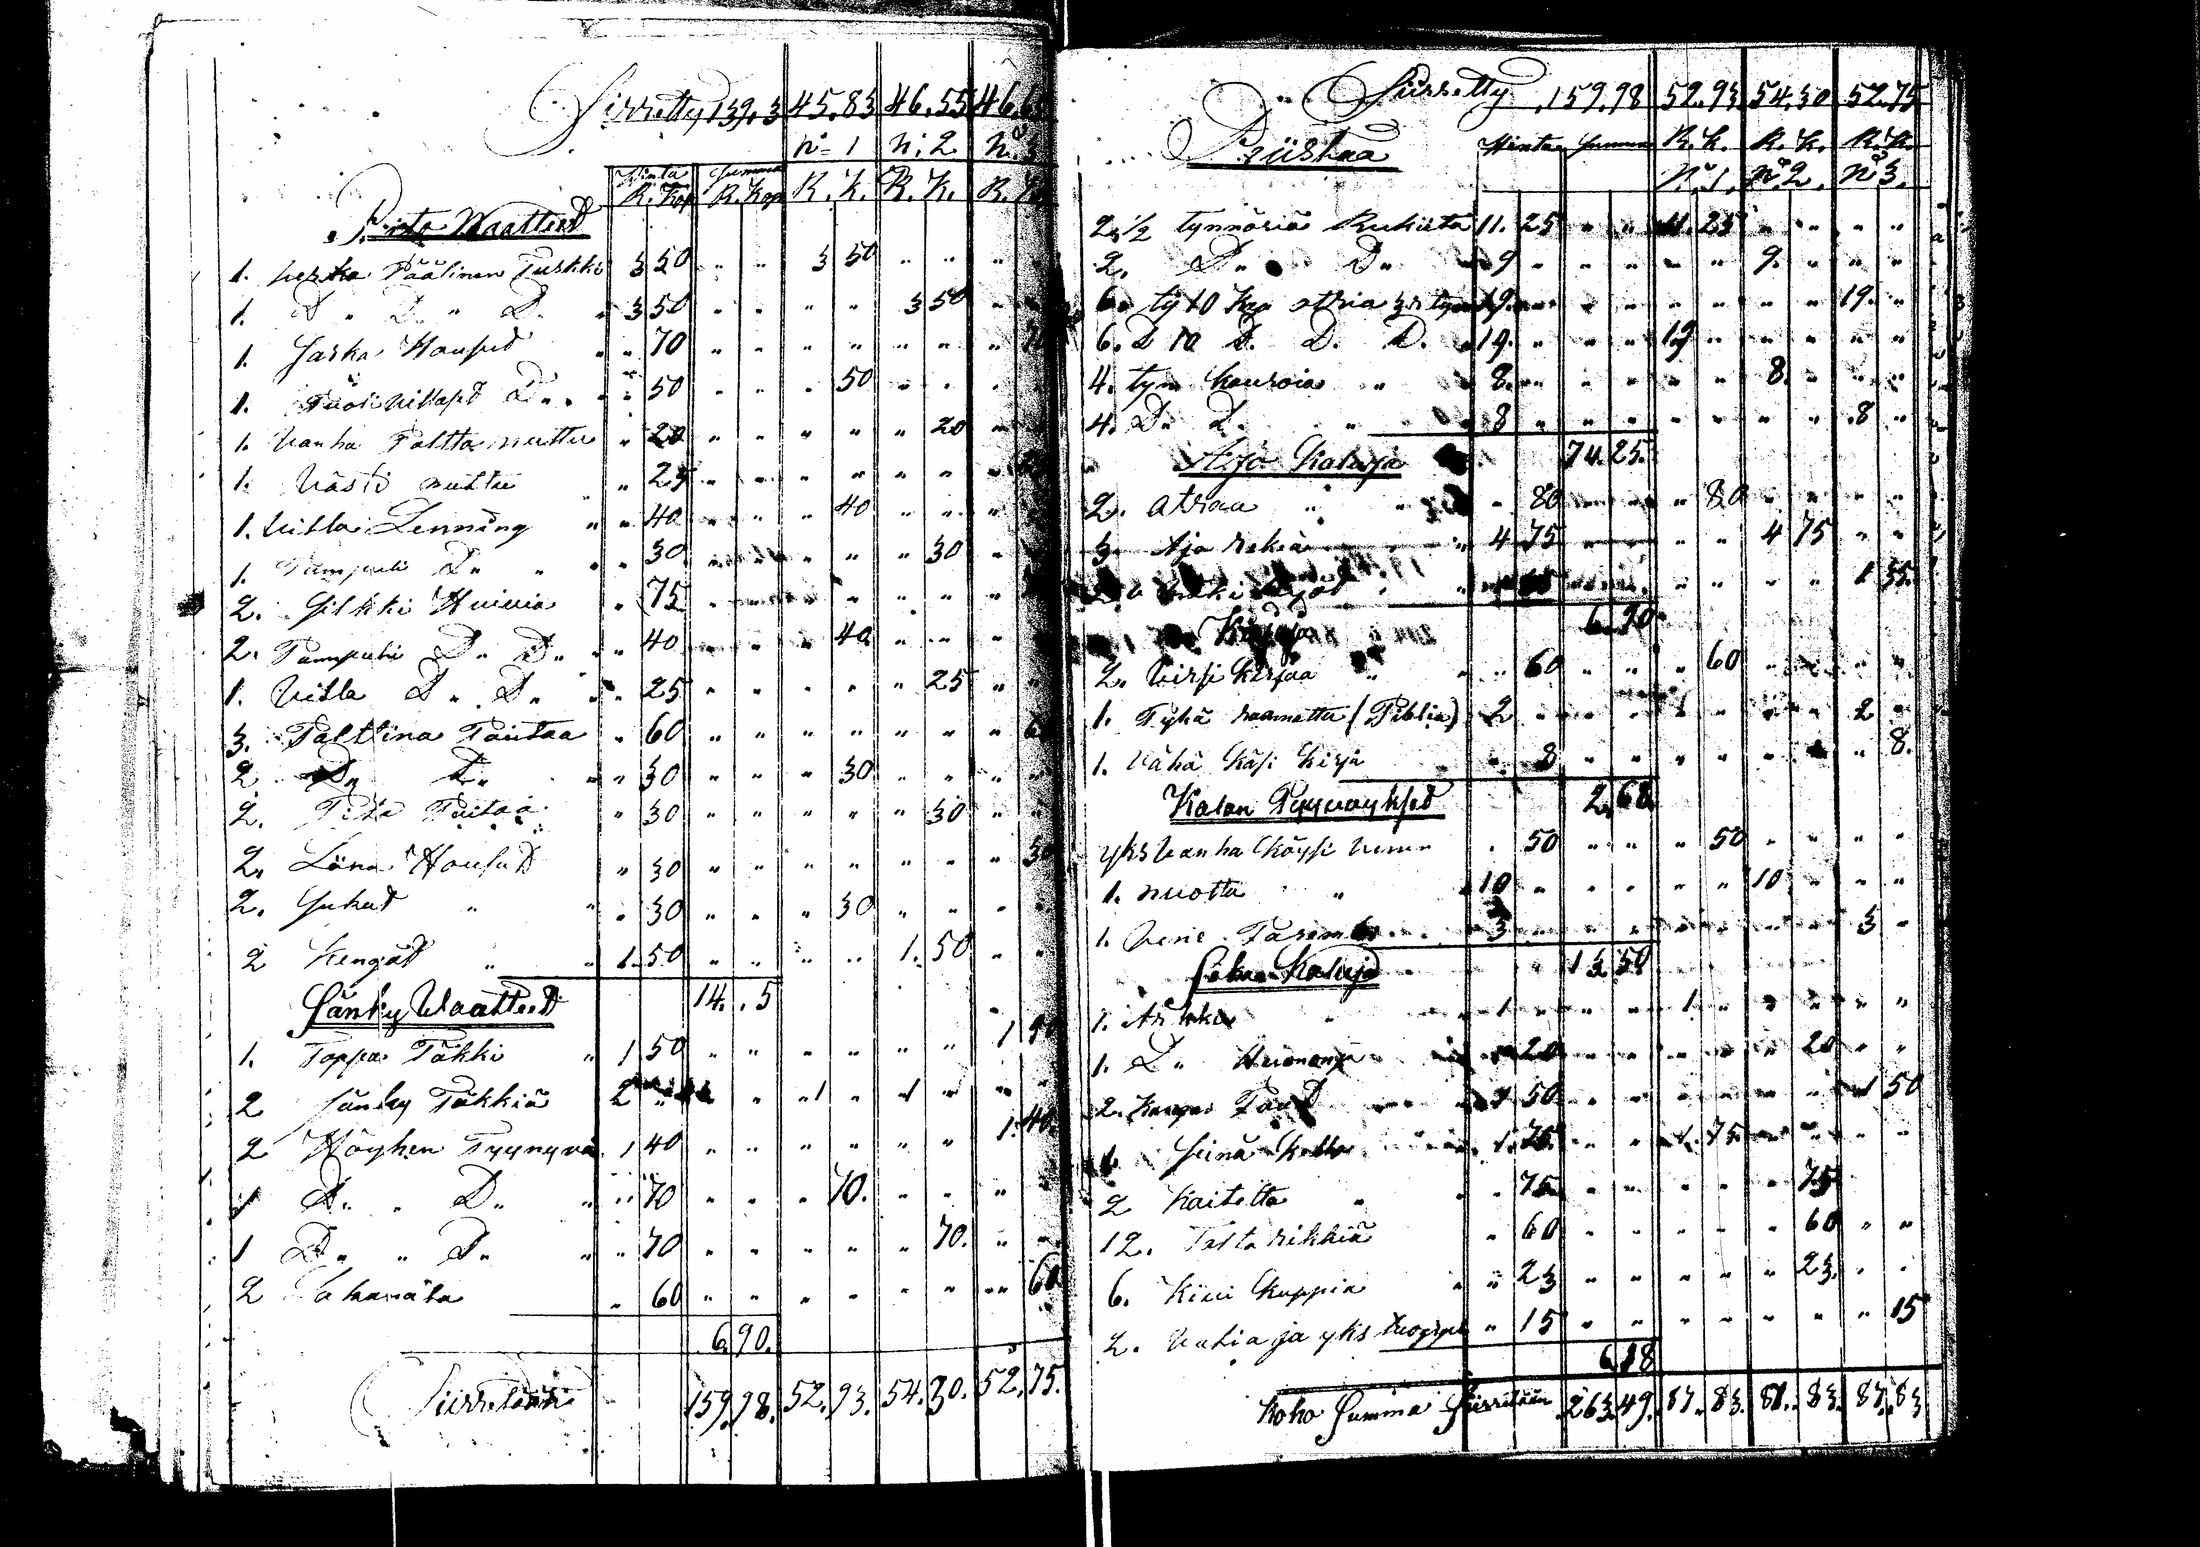 Siirretty 139. 3 45. 83 46. 55 46.
n= 1 n: 2. n: 3
Hinta Summa
R. Kop R. Kop R. K. R. K. R. K.
Pito Waatteet
1. Verka Päälinen Turkki 3 50 " " 3 50 " " " "
1. D " D. " D. " 3 50 " " " " 3 50 " "
1. Sarka Housud " " 70 " " " " " " " 70
1. Puoli villased D. " " 50 " " " 50 " " " "
1. Vanha Paltta nuttu " 20 " " " " " 20 " "
1. Väsid nuttu " 25 " " " " " " "
1. Villa Lenning " " 40 " " " 40 " " " "
1. Pumpuli D. " " 30 " " " " " 30 "
2. Silkki Huivia " 75 " " " " " " "
2. Pumpuli D. D. " " 40 " " " 40 " " "
1. Villa D. D. " " 25 " " " " " 25 " "
3. Palttina Paitaa " 60 " " " " " " " 60
2 D. D. " " 30 " " " 30 " " " "
2. Paitaa " 30 " " " " " 30 " "
2. Housud " 30 " " " " " " " 30
2. Sukad " " " 30 " " " 30 " " " "
2 Kengäd " " 1. 50 " " " " 1. 50 " "
Sänky Waatteed 14. . 5
1. Toppa Täkki " 1 50 " " " " " " 1
2 Sänky Täkkiä 2 " " " 1 " 1 " "
2 Höyhen Tyynyvä 1 40 " " " " " " 1. 40
1 D. " D. " " 70 " " " 70. " " "
1 D. " D. " " 70 " " " " " 70. " "
2 Lakanata " 60 " " " " " " " 60
6 90.
Siirretään 159. 98. 52. 93. 54. 30. 52. 75.
Siirretty 159. 98 52. 93 54. 30 52. 75
Hinta Summa R. K. R. K. R. K.
No 1. No 2. No 3.
2. 1/2 tynnöriä Rukiita 11. 25 " " 11. 25 " " " "
2. D. D. " 9 " " " " " 9. " " "
6. ty 10 kp ohria 19. " " " " " " 19. "
6. D 10 D. D. D. 19. " " " 19 " " " "
4. tyn kauroia " 8. " " " " " 8. " " "
4. D. D. " 8 " " " " " " " 8 "
Ajo Kaluja 74. 25.
2. atraa " " " 80 " " " 80 " " " "
3 Ajo rekiä " 4 75 " " " " 4 75 " "
" " " " 1 35.
Kirjoja 6. 90
2. Virsi kirjaa " " 60 " " " 60 " " " "
1. Pyhä raamattu (Piblia) 2 " " " " " " " 2 "
1. Vähä Käsi kirja " 8 " " " " " " " 8.
Kalan Pyyvöyksed 2. 68.
yks vanha köysi " 50 " " " 50 " " " "
1. nuotta " 10 " " " " " 10 " " "
1. Vene 3 " " " " " " 3 "
Kaluja 13 50
1. Arkku " 1 " " " 1 " " " " "
1. D. Huonompi " 20 " " " " " 20 " "
2. Kangas 1 50 " " " " " " 1 50
1 Seinä Kello " 1. 75. " " 1. 75. " " " "
2 Kaitetta " " 75 " " " " " 75
12. " 60 " " " " " 60 " "
6. Kivi Kuppia " " 23 " " " " " 23. " "
2. Vatia ja yks " 15 " " " " " " " 15
6 18
Koko Summa Siirretään 263. 49. 87. 83. 87. 83. 87. 83